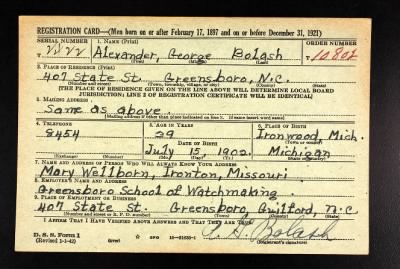 REGISTRATION CARD—(Men born on or after February 17, 1897 and on or before December 31, 1921)
SERIAL NUMBER 1. NAME (Print) ORDER NUMBER
Alexander, George Bolash
(First) (Middle) (Last)
T 10802
2. PLACE OF RESIDENCE (Print)
407 State St. Greensboro, N.C.
(Number and street) (Town, township, village, or city) (County) (State)
[THE PLACE OF RESIDENCE GIVEN ON THE LINE ABOVE WILL DETERMINE LOCAL BOARD
JURISDICTION; LINE 2 OF REGISTRATION CERTIFICATE WILL BE IDENTICAL]
3. MAILING ADDRESS
Same as above
(Mailing address if other than place indicated on line 2. If same insert word same)
4. TELEPHONE 5. AGE IN YEARS 6. PLACE OF BIRTH
8454 39 Ironwood, Mich.
DATE OF BIRTH (Town or county)
July 15, 1902 Michigan
(Exchange) (Number) (Mo.) (Day) (Yr.) (State or country)
7. NAME AND ADDRESS OF PERSON WHO WILL ALWAYS KNOW YOUR ADDRESS
Mary Wellborn, Ironton, Missouri
8. EMPLOYER'S NAME AND ADDRESS
Greensboro School of Watchmaking
9. PLACE OF EMPLOYMENT OR BUSINESS
407 State St. Greensboro, Guilford, N.C
(Number and street or R. F. D. number) (Town) (County) (State)
I AFFIRM THAT I HAVE VERIFIED ABOVE ANSWERS AND THAT THEY ARE TRUE.
D. S. S. Form 1
(Revised 1-1-42) (over) GPO 16-21630-1
Bolash
(Registrant's signature)